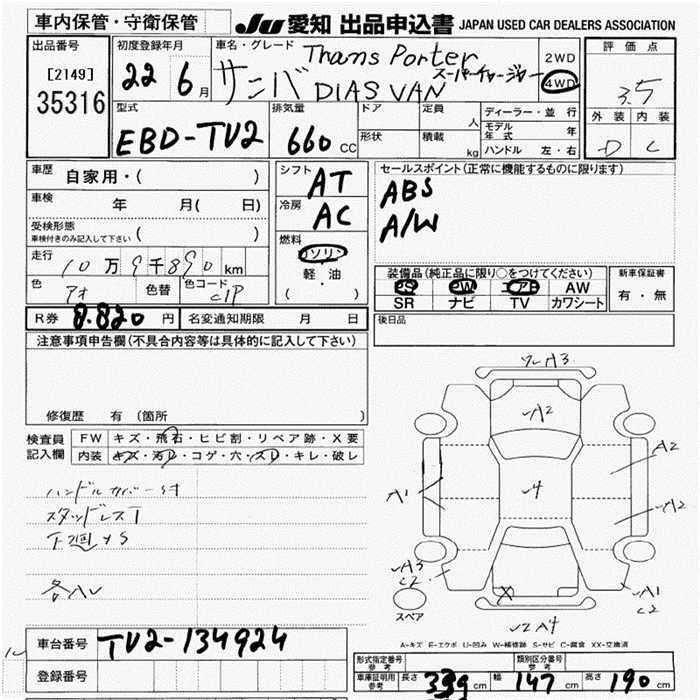 車内保管・守衛保管
JU 愛知 出品申込書 JAPAN USED CAR DEALERS ASSOCIATION
出品番号
[2149]
35316
初度登録年月
22 6月
車名・グレード
Thans Porter
サンバ DIAS VAN
スーパーチャージャー
2WD
4WD
評価点
3.5
外装 内装
D C
型式
EBD-TV2
排気量
660 CC
ドア
形状
定員 人
積載 kg
ディーラー・並行
モデル年式 年
ハンドル 左・右
車歴 自家用・( )
車検 年 月( 日)
受検形態
車検付きのみ記入して下さい ( )
走行 10万9千890km
色 アオ 色替 色コード C1P
R券 8.820円 名変通知期限 月 日
シフト AT
冷房 AC
燃料 ガソリン
軽・油
( )
セールスポイント(正常に機能するものに限ります)
ABS
A/W
装備品(純正品に限り○をつけてください)
PS PW エアB AW
SR ナビ TV カワシート
新車保証書
有・無
後日品
注意事項申告欄(不具合内容等は具体的に記入して下さい)
修復歴 有 (箇所 )
検査員記入欄
FW キズ・飛石・ヒビ割・リペア跡・X要
内装 キズ・汚レ・コゲ・穴・スレ・キレ・破レ
ハンドルカバー付
スタッドレスT
下廻サS
各AU
A3
A2
A2
A1
4
A2
A3
C2
X
A1
C2
A4
スペア
A-キズ E-エクボ U-凹み W-補修跡 S-サビ C-腐食 XX-交換済
車台番号 TV2-134924
登録番号
形式指定番号 参考
類別区分番号 参考
車庫証明用 参考
長さ 339cm 幅 147cm 高さ 190cm